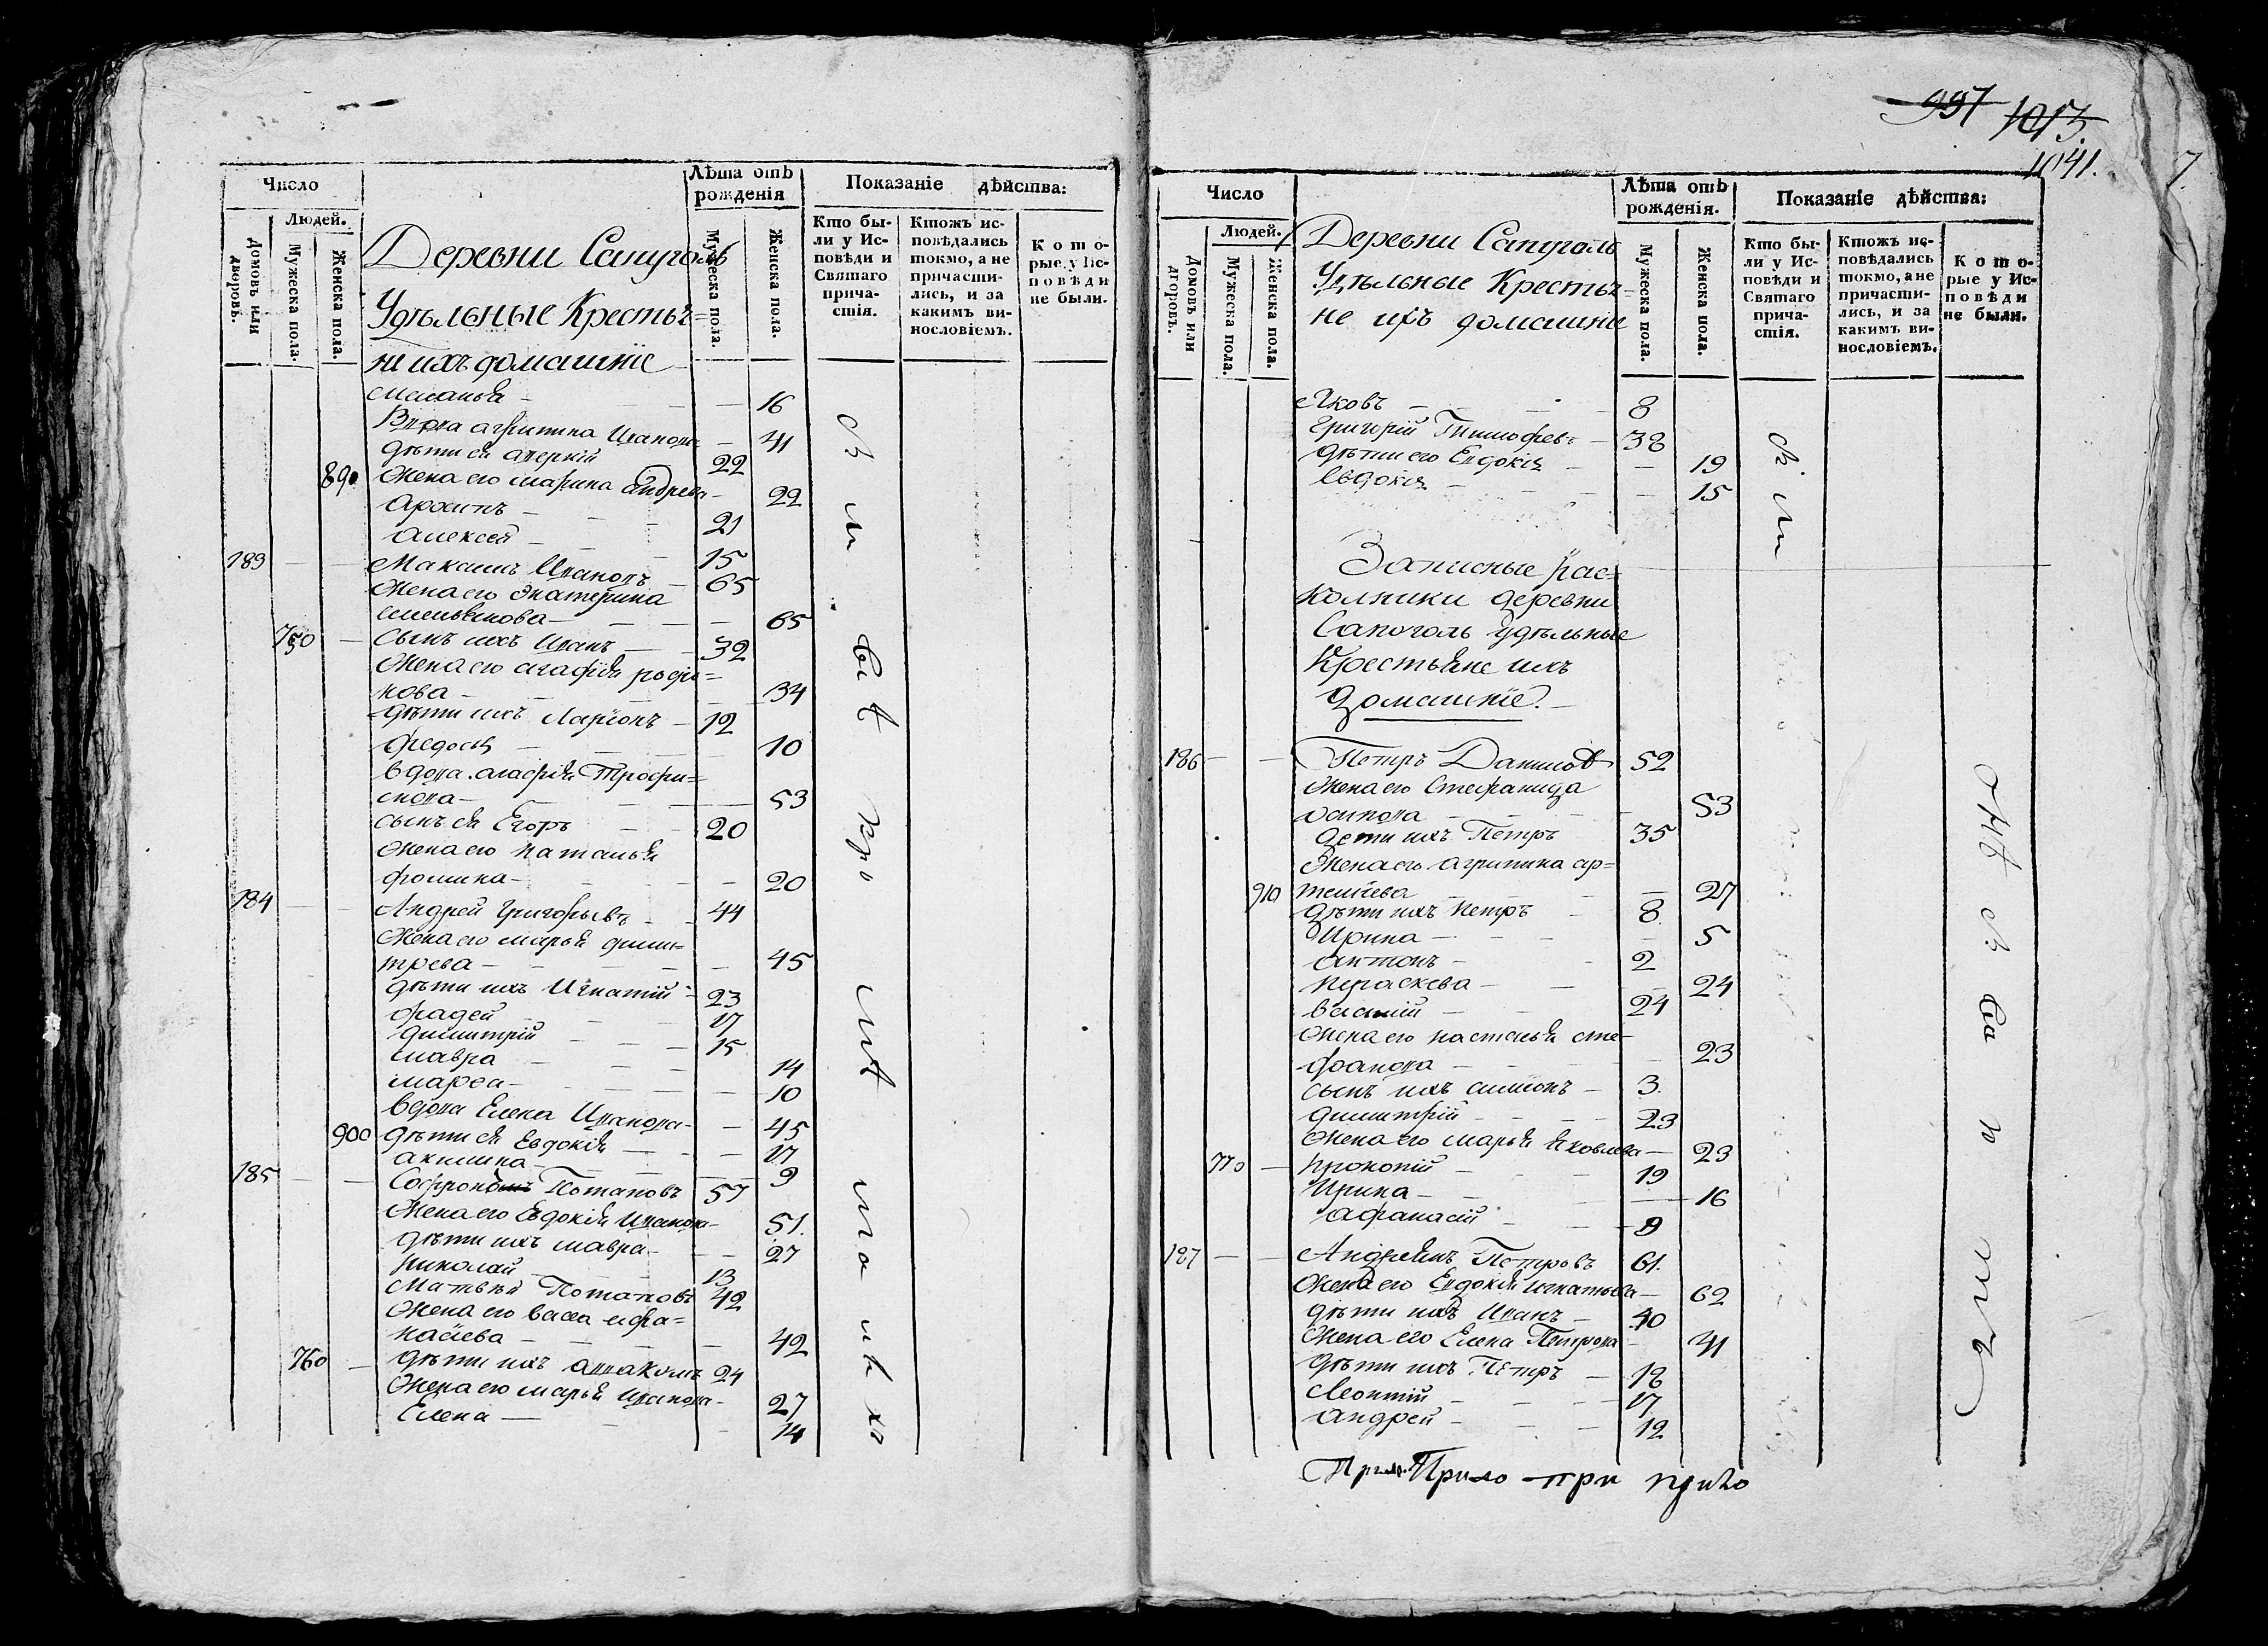 Число
Лѣта отъ рожденія
Показаніе дѣйства:
Людей.
Домовъ или дворовъ.
Мужеска пола.
Женска пола.
Мужеска пола.
Женска пола.
Кто были у Исповѣди и Святаго причастія.
Ктожъ исповѣдались токмо, а не причастились, и за какимъ винословіемъ.
Которые у Исповѣди не были.
Деревни Сапуголь
Удѣльные Крестья=
не ихъ домашніе
Меланья 16
Вдова агрипина Иванова 41
дѣти ея аверкій 22
890 Жена его марина андреева 22
Архипъ 21
Алексей 15
183 Максимъ Ивановъ 65
Жена его екатерина
емельянова 65
750 сынъ ихъ Иванъ 32
Жена его агафія
34
дѣти ихъ Ларіонъ 12
федосья 10
вдова агафія Трофи=
мова 53
сынъ ея Егоръ 20
Жена его наталья
фомина 20
184 Андрей Григорьевъ 44
Жена его марья дими=
трева 45
дѣти ихъ Игнатій 23
фадей 17
димитрій 15
мавра 14
марѳа 10
вдова Елена Иванова 45
900 дѣти ея Евдокія 17
акилина 9
185 Софронъ Потаповъ 57
Жена его Евдокія Иванова 51.
дѣти ихъ мавра 27
николай 13
Матвѣй Потаповъ 42
Жена его васса афа=
насіева 42
760 дѣти ихъ аввакумъ 24
Жена его марья Иванова 27
Елена 14
997 1013.
1041.
7
Число
Лѣта отъ рожденія.
Показаніе дѣйства:
Людей.
Домовъ или дворовъ.
Мужеска пола.
Женска пола.
Мужеска пола.
Женска пола.
Кто были у Исповѣди и Святаго причастія.
Ктожъ исповѣдались токмо, а не причастились, и за какимъ винословіемъ.
Которые у Исповѣди не были.
Деревни Сапуголь
Удѣльные Крестья=
не ихъ домашніе
Яковъ 8
Григорій Тимофев: 38
дѣти его Евдокія 19
Евдокія 15
Записные рас=
колники деревни
Сапоголь удѣльные
Крестьяне ихъ
домашніе.
186 Петръ Данилов 52
Жена его Стефанида
осипова 53
дети ихъ Петръ 35
Жена его агрипина ар=
910 темиева 27
дѣти ихъ петръ 8
Ирина 5
антонъ 2
параскева 24
василій 24
Жена его насталья сте=
фанова 23
сынъ ихъ симионъ 3.
димитрій 23
Жена его марья яковлева 23
770 прокопій 19
Ирина 16
афанасій 9
187 Андреянъ Петровъ 61.
Жена его Евдокія игнатьева 62
дѣти ихъ Иванъ 40
Жена его Елена Петрова 41
дѣти ихъ Петръ 18
Леонтій 17
андрей 12
Прило при